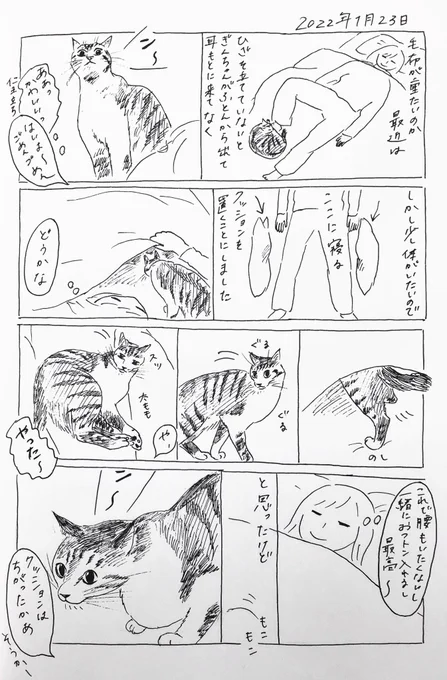 2022年1月23日
毛布が重たいのか
最近は
ひざを立てていないと
ぎんちゃんがふとんから出て
耳もとに来てなく
ン〜
ああっ
かわいいっ
はいはーい
ごめんごめん
仁王立ち
しかし少し体がいたいので
ここに寝る
クッションを
置くことにしました
どうかな
のし
ぐる
ぐる
スッ
太もも
やっ
やった〜
これで腰もいたくないし
一緒におフトン入れるし
最高〜
と思ったけど
もこ
もこ
ン〜
クッションは
ちがったかぁ
そうか〜